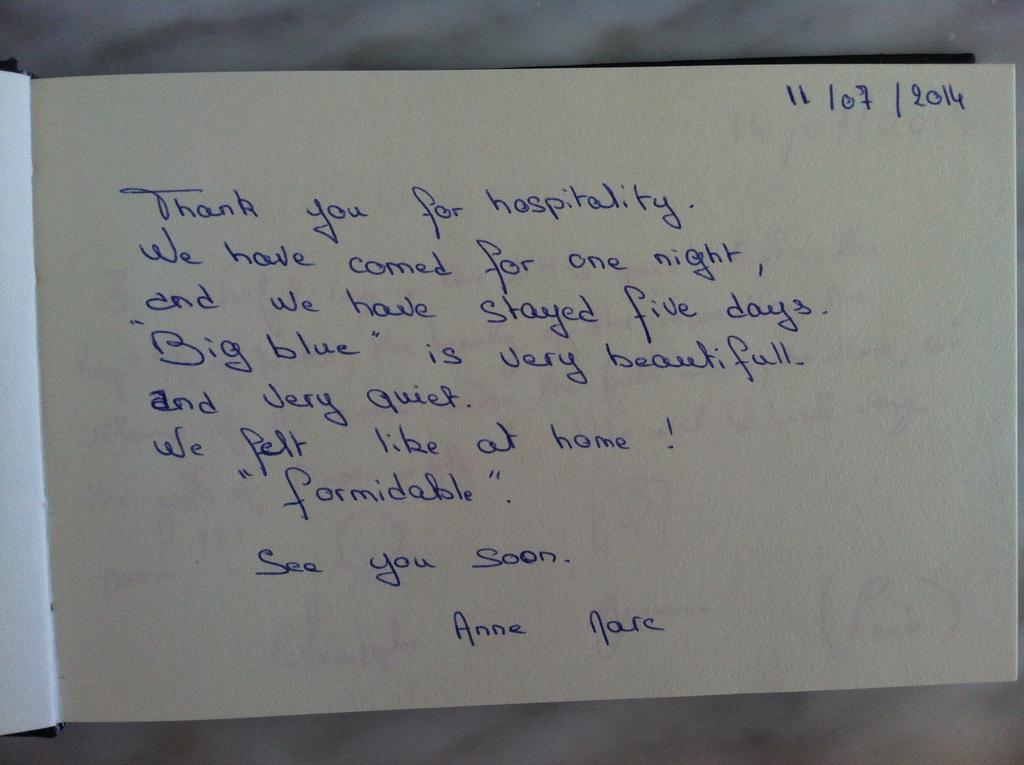 11/07/2014
Thank you for hospitality.
We have comed for one night,
and we have stayed five days.
"Big blue" is very beautifull.
and very quiet.
We felt like at home !
"formidable".
See you soon.
Anne Marc